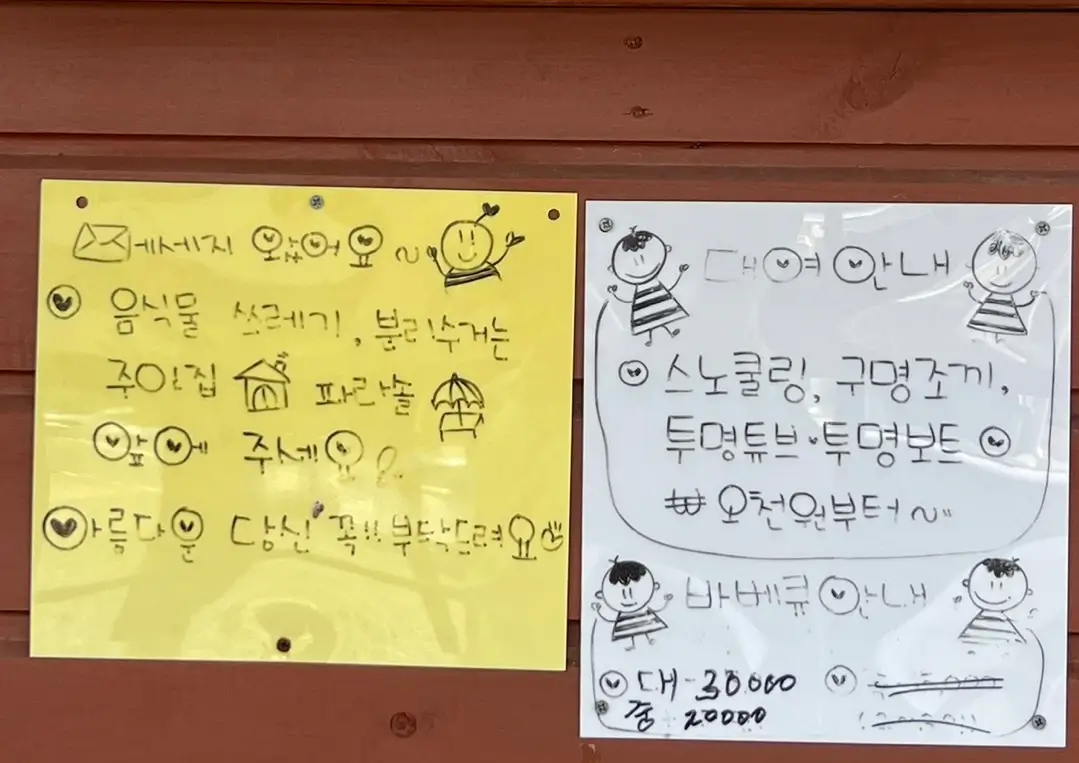 메세지 왔어요~
음식물 쓰레기, 분리수거는
주인집 파라솔
앞에 주세요
아름다운 당신 꼭!! 부탁드려요
대여 안내
스노쿨링, 구명조끼,
투명튜브·투명보트
₩ 오천원부터~
바베큐 안내
대 - 30000
중 - 20000